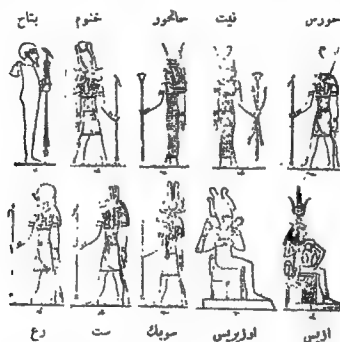 حورس نيت حاتحور خنوم بتاح
ازيس اوزيريس سوبك ست رع